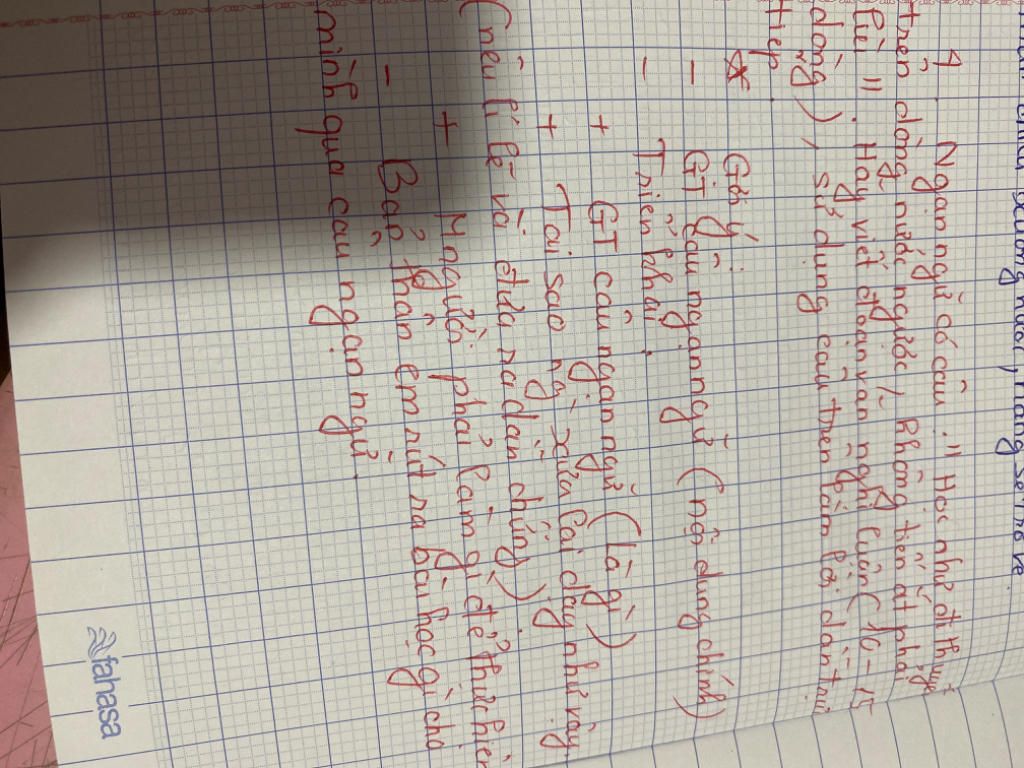 4. Ngạn ngữ có câu :" Học như đi thuyền
trên dòng nước ngược, không tiến ắt phải
lùi ". Hãy viết đoạn văn nghị luận ( 10 - 15
dòng ), sử dụng câu theo làm lời dẫn trực
tiếp.
* Gợi ý :
- GT câu ngạn ngữ ( nội dung chính )
- Triển khai :
+ GT câu ngạn ngữ ( là gì )
+ Tại sao ng xưa lại dạy như vậy
( nêu lí lẽ và đưa ra dẫn chứng )
+ Mn người phải làm gì để thực hiện
- Bản thân em rút ra bài học gì cho
mình qua câu ngạn ngữ.
fahasa